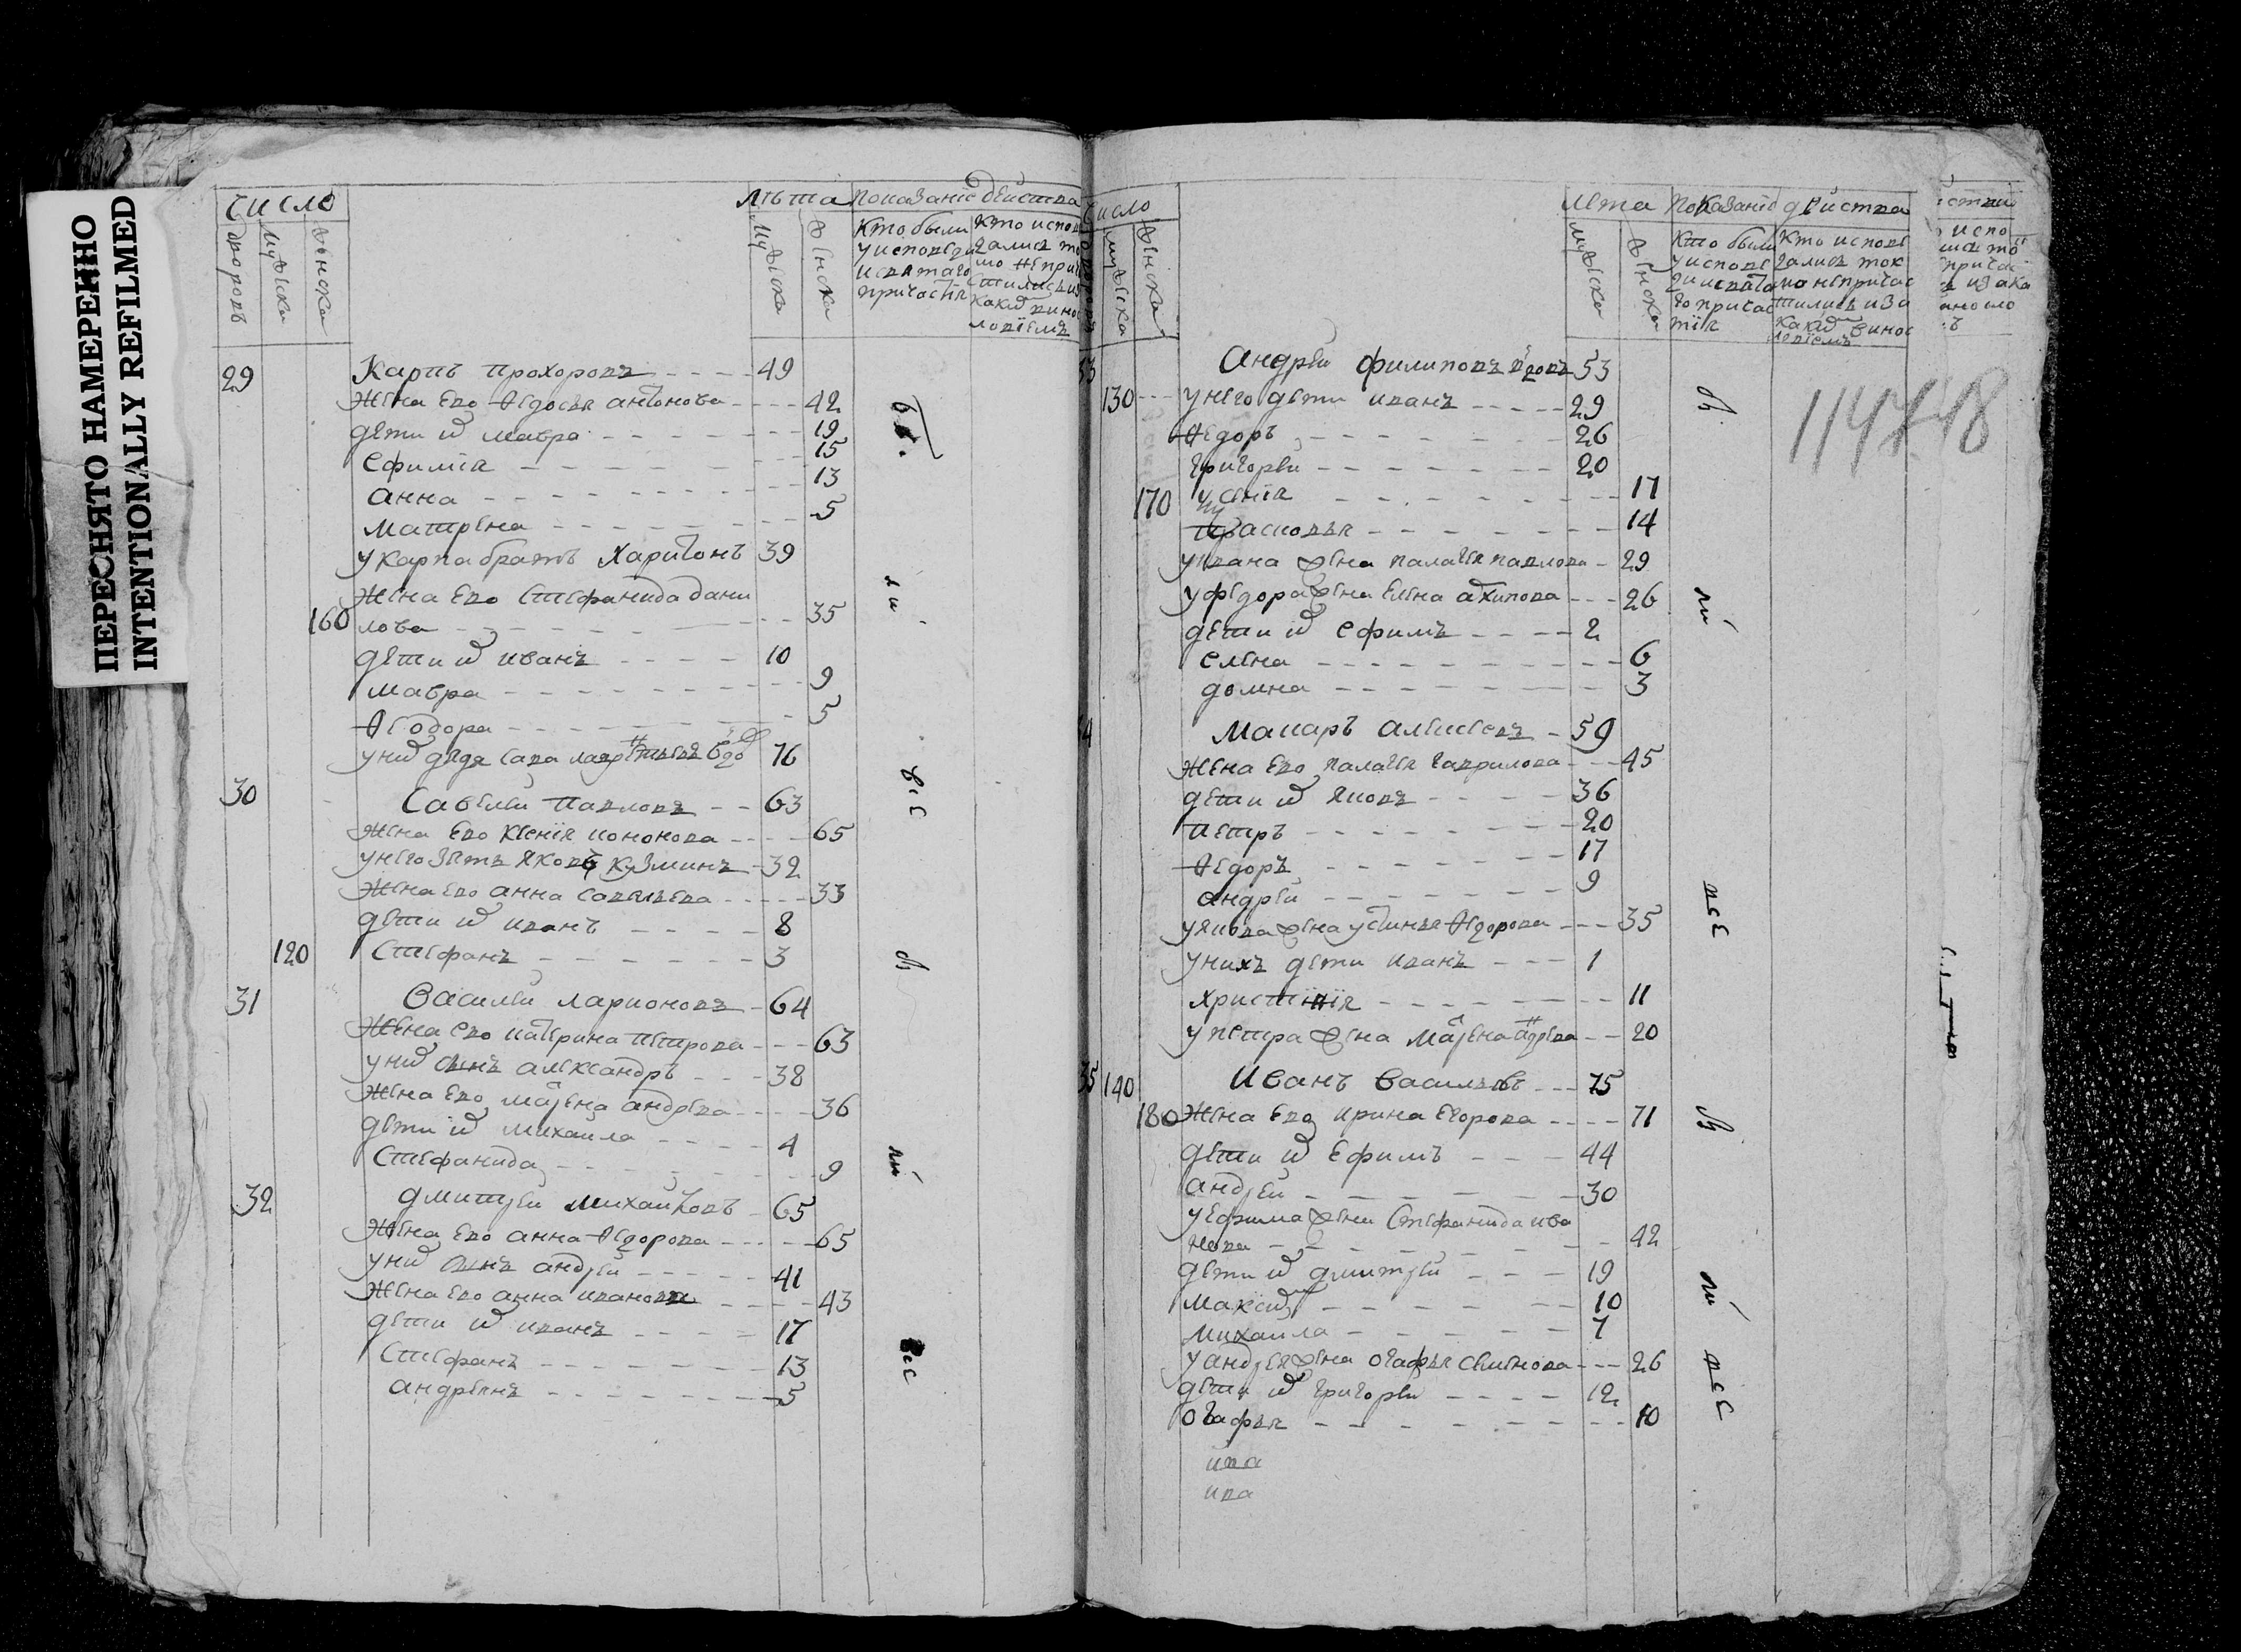 ПЕРЕСНЯТО НАМЕРЕННО
INTENTIONALLY REFILMED
число
дворовъ
мужеска
женска
лѣта
мужеска
женска
показаніе действа
Кто были
у исповеди
и святаго
причастія
Кто испов
дались то
мо не прич
стились и з
какид винос
ловіемъ
29 Карпъ прохоровъ 49
Жена ево Ѳедосья антонова 42
дети их мавра 19
Ефимія 15
анна 13
матрена 5
у карпа братъ Харитонъ 39
Жена ево Стефанида дани
160 лова 35
дети их иванъ 10
мавра 9
Ѳеодора 5
у них дядя сава лаврентьевъ вдо 76
30 Савелеи павловъ 63
Жена ево Ксенія кононова 65
у него зять яковъ кузминъ 32
Жена ево анна савельева 33
дети их иванъ 8
120 Стефанъ 3
31 Василеи ларионовъ 64
Жена ево катерина петрова 63
у них сынъ александръ 38
Жена ево матрена андрева 36
дети их михаила 4
Стефанида 9
32 дмитреи михаиловъ 65
Жена ево анна Ѳедорова 65
у них сынъ андреи 41
Жена ево анна иванова 43
дети их иванъ 17
Стефанъ 13
андреянъ 5
бы
ли
всѣ
бы
ли
всѣ
число
мужеска
женска
лета
мужеска
женска
показаніе действа
Кто были
у испове
ди и свята
го причас
тія
Кто испове
дались ток
мо не причас
тились и за
какид винос
ловіемъ
33 андреи филиповъ вдовъ 53
130 у него дети иванъ 29
Ѳедоръ 26
григореи 20
170 ксенія 17
прасковья 14
у ивана жена палагея павлова 29
у федора жена елена архипова 26
дети их ефимъ 2
елена 6
домна 3
34 Макаръ алексеевъ 59
жена ево палагея гаврилова 45
дети их яковъ 36
петръ 20
Ѳедоръ 17
андреи 9
у якова жена устинья Ѳедорова 35
у нихъ дети иванъ 1
христинія 11
у петра жена матрена андрева 20
35 140 Иванъ васильевъ 75
180 Жена ево ирина егорова 71
дети их Ефимъ 44
андреи 30
у ефима жена Стефанида ива
нова 42
дети их дмитреи 19
максимъ 10
михаила 7
у андрея жена огафья семенова 26
дети их григореи 12
огафья 10
ива
ива
бы
ли
всѣ
бы
ли
всѣ